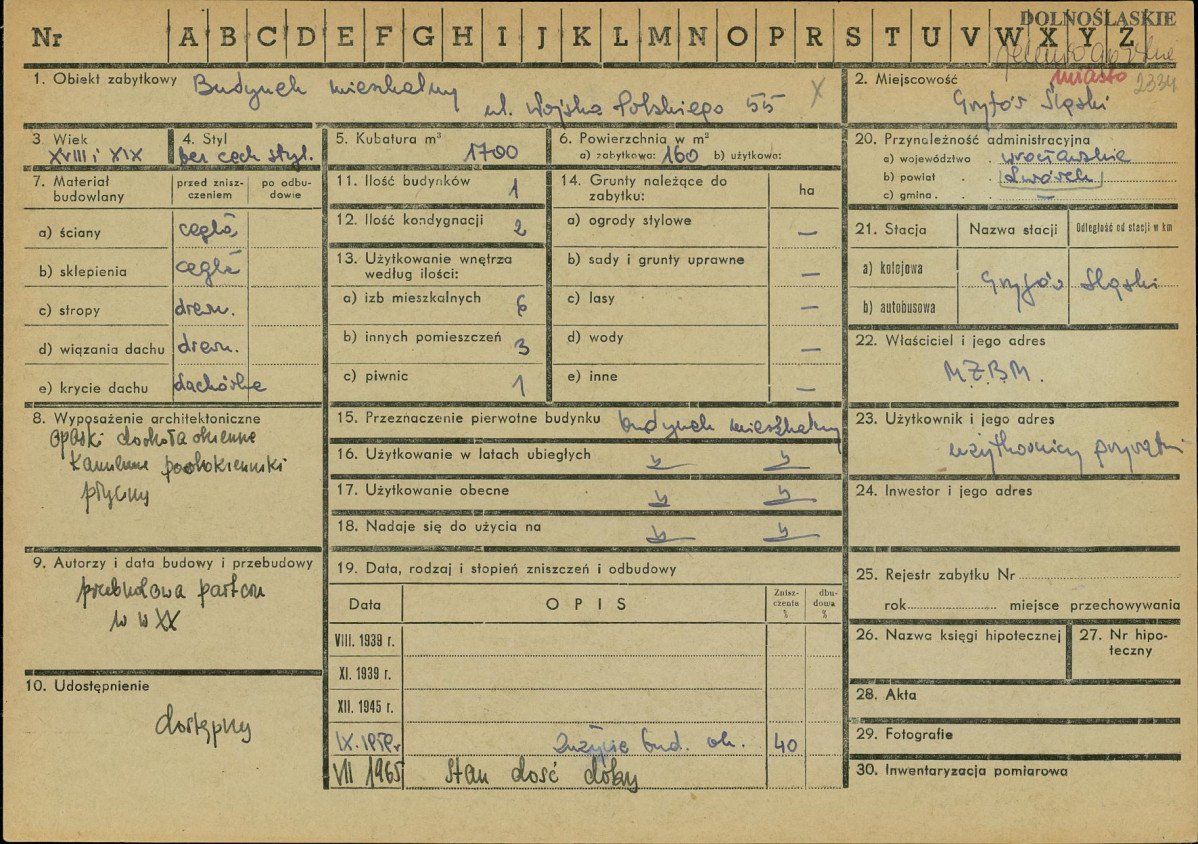 DOLNOŚLĄSKIE
Nr A B C D E F G H I J K L M N O P R S T U V W X Y Z
miasto 2334
1. Obiekt zabytkowy Budynek mieszkalny
ul. Wojska Polskiego 55 X
2. Miejscowość
Gryfów Śląski
3. Wiek
XVIII i XIX
4. Styl
bez cech styl.
5. Kubatura m³
1700
6. Powierzchnia w m²
a) zabytkowa: 160 b) użytkowa:
7. Materiał budowlany
przed zniszczeniem
po odbudowie
a) ściany cegła
b) sklepienia cegła
c) stropy drewn.
d) wiązania dachu drewn.
e) krycie dachu dachówka
8. Wyposażenie architektoniczne
opaski dookoła okienne
kamienne podokienniki
płyciny
9. Autorzy i data budowy i przebudowy
przebudowa parteru
w w XX
10. Udostępnienie
dostępny
11. Ilość budynków 1
12. Ilość kondygnacji 2
13. Użytkowanie wnętrza według ilości:
a) izb mieszkalnych 6
b) innych pomieszczeń 3
c) piwnic 1
14. Grunty należące do zabytku:
ha
a) ogrody stylowe —
b) sady i grunty uprawne —
c) lasy —
d) wody —
e) inne —
15. Przeznaczenie pierwotne budynku budynek mieszkalny
16. Użytkowanie w latach ubiegłych " "
17. Użytkowanie obecne " "
18. Nadaje się do użycia na " "
19. Data, rodzaj i stopień zniszczeń i odbudowy
Data OPIS Zniszczenie % dbudowa %
VIII. 1939 r.
XI. 1939 r.
XII. 1945 r.
IX. 1959r Zużycie bud. ok. 40
VII 1965 Stan dość dobry
20. Przynależność administracyjna
a) województwo . wrocławskie
b) powiat . . Lwówek
c) gmina . . . —
21. Stacja Nazwa stacji Odległość od stacji w km
a) kolejowa
Gryfów Śląski
b) autobusowa
22. Właściciel i jego adres
M.Z.B.M.
23. Użytkownik i jego adres
użytkownicy prywatni
24. Inwestor i jego adres
25. Rejestr zabytku Nr
rok miejsce przechowywania
26. Nazwa księgi hipotecznej
27. Nr hipoteczny
28. Akta
29. Fotografie
30. Inwentaryzacja pomiarowa